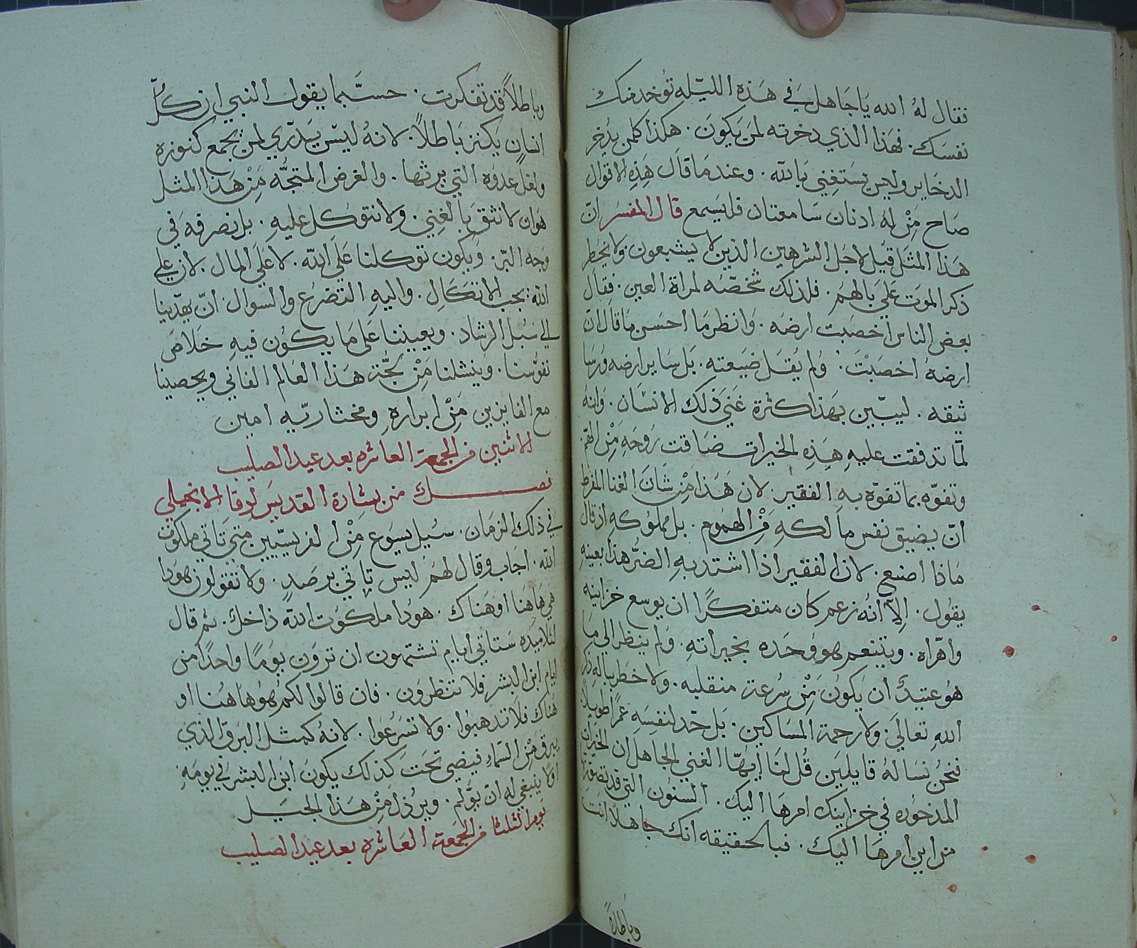 فقال له الله يا جاهل في هذه الليله توخد منك
نفسك. فهذا الذي دخرته لمن يكون. هكذا كلمن يدخر
الدخاير وليس يستغني بالله. وعند ما قال هذه الاقوال
صاح من له ادنان سامعتان فليسمع قال المفسر ان
هذا المثل قيل لاجل الشرهين الذين لا يشبعون ولا يخطر
ذكر الموت على بالهم. فلذلك شخصه لمراة العين. فقال
بعض الناس اخصبت ارضه. وانظر ما احسن ما قال ان
ارضه اخصبت. ولم يقل ضيعته. بل ساير ارضه ورسا
تيقه. ليبين بهذا كثرة غني ذلك الانسان. وانه
لما تدفقت عليه هذه الخيرات ضاقت روحه من الهم
وتفوه بما تفوه به الفقير. لان هذا من شان الغنا المفرط
ان يضيق نفس مالكه من الهموم. بل مملوكه اذ قال
ماذا اصنع. لان الفقير اذا اشتد به الضر هذا بعينه
يقول. الا انه زعم كان متفكرا ان يوسع خزاينه
واهراه. ويتنعم هو وحده بخيراته. ولم ينظر الى ما
هو عتيد ان يكون من سرعة منقلبه. ولا خطر بباله ذكر
الله تعالى ولا رحمة المساكين. بل حد لنفسه عمرا طويلا
فنحن نساله قايلين قل لنا ايها الغني الجاهل ان الخيرات
المدخوره في خزاينك امرها اليك. السنون التي قد تصورت
من اين امرها اليك. فبالحقيقه انك جاهلا انت
وباطلا
وباطلاً قد تفكرت. حسبما يقول النبي ان كل
انسان يكنز باطلاً. لانه ليس يدري لمن يجمع كنوزه
ولعل عدوه التي يرثها. والغرض المتجه من هذا المثل
هو ان لا نثق بالغنى. ولا نتوكل عليه. بل نصرفه في
وجه البر. ويكون توكلنا على الله. لا على المال. لان على
الله يجب الاتكال. واليه التضرع والسوال ان يهدينا
الى سبل الرشاد. ويعيننا على ما يكون فيه خلاص
نفوسنا. وينشلنا من لجة هذا العالم الفاني ويحصينا
مع الفايزين من ابراره ومختاريه امين
الاثنين من الجمعة العاشره بعد عيد الصليب
فصل من بشارة القديس لوقا الانجيلي
في ذلك الزمان. سيل يسوع من الفريسيين متى تاتي ملكوت
الله. اجاب وقال لهم ليس ياتي برصد. ولا تقولوا هودا
هي هاهنا او هناك. هودا ملكوت الله داخلك. ثم قال
لتلاميده ستاتي ايام تشتهون ان ترون يوما واحدا من
ايام ابن البشر فلا تنظرون. فان قالوا لكم هو هاهنا او
هناك فلا تدهبوا. ولا تسرعوا. لانه كمثل البرق الذي
يبرق من السماء فيضي تحت كذلك يكون ابن البشر في يومه
اولا ينبغي له ان يولم. ويرذل من هذا الجيل
يوم الثلاثا من الجمعة العاشره بعد عيد الصليب